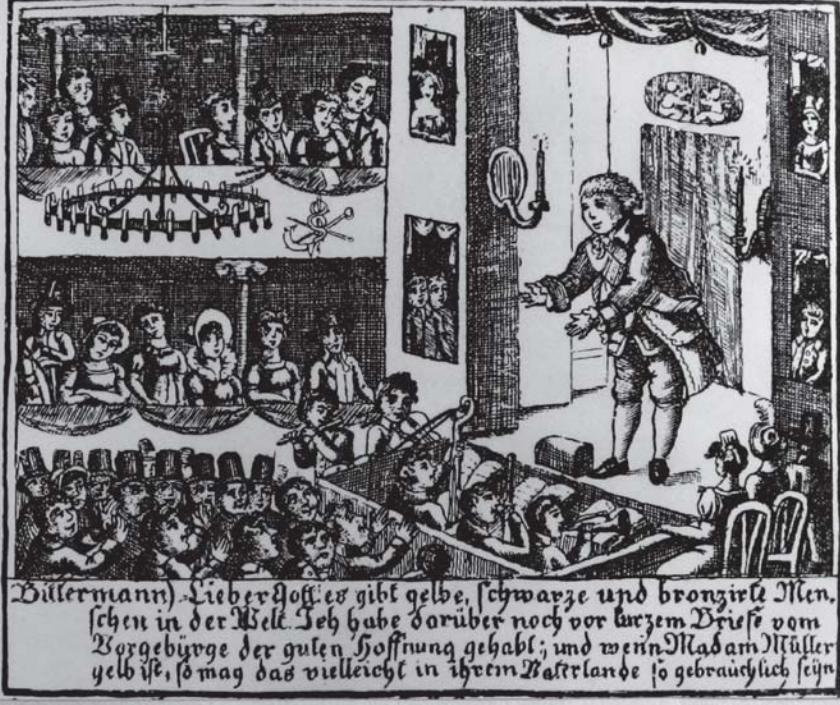 Bittermann) Lieber Gott! es gibt gelbe, schwarze und bronzirte Men,
schen in der Welt. Ich habe darüber noch vor kurzem Briefe vom
Vorgebürge der guten Hoffnung gehabt; und wenn Madam Müller
gelb ist, so mag das vielleicht in ihrem Vaterlande so gebräuchlich seyn